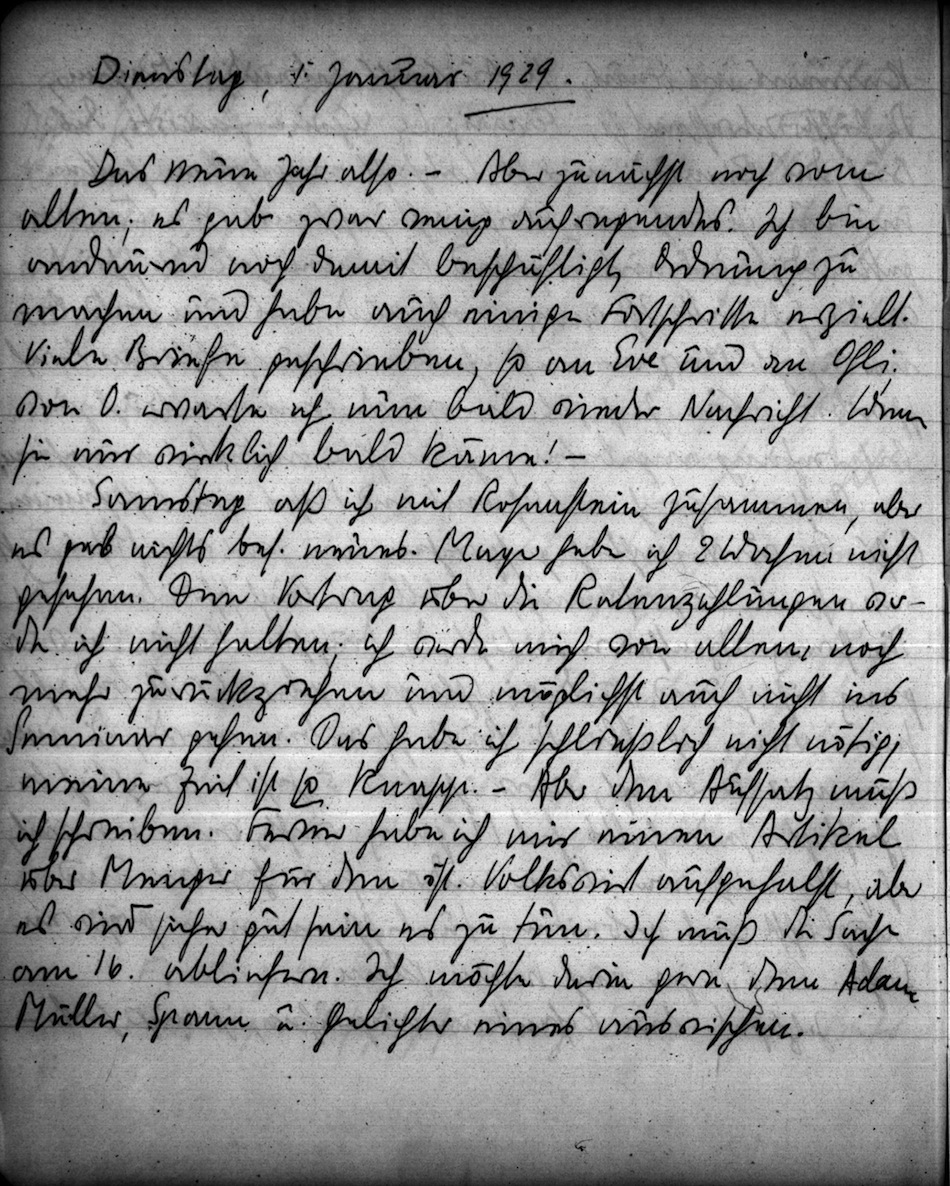 Dienstag, 1. Januar 1929.
Das neue Jahr also. – Aber zunächst noch vom
alten; es gab zwar wenig aufregendes. Ich bin
andauernd noch damit beschäftigt, Ordnung zu
machen und habe auch einige Fortschritte erzielt.
Viele Briefe geschrieben, so an Eve und an Olli.
von O. erwarte ich nun bald wieder Nachricht. Wenn
sie nur wirklich bald käme! –
Samstag aß ich mit Rosenstein zusammen, aber
es gab nichts bes. neues. Mayer habe ich 2 Wochen nicht
gesehen. Den Vortrag über die Ratenzahlungen wer-
de ich nicht halten; ich werde mich von allem noch
mehr zurückziehen und möglichst auch nicht ins
Seminar gehen. Das habe ich schließlich nicht nötig,
meine Zeit ist so knapp. – Aber den Aufsatz muß
ich schreiben. Ferner habe ich mir einen Artikel
über Menger für den öst. Volkswirt aufgehalst, aber
es wird sicher gut sein es zu tun. Ich muß die Sache
am 16. abliefern. Ich möchte darin gern dem Adam
Müller, Spann u. Gelichter eines auswischen.